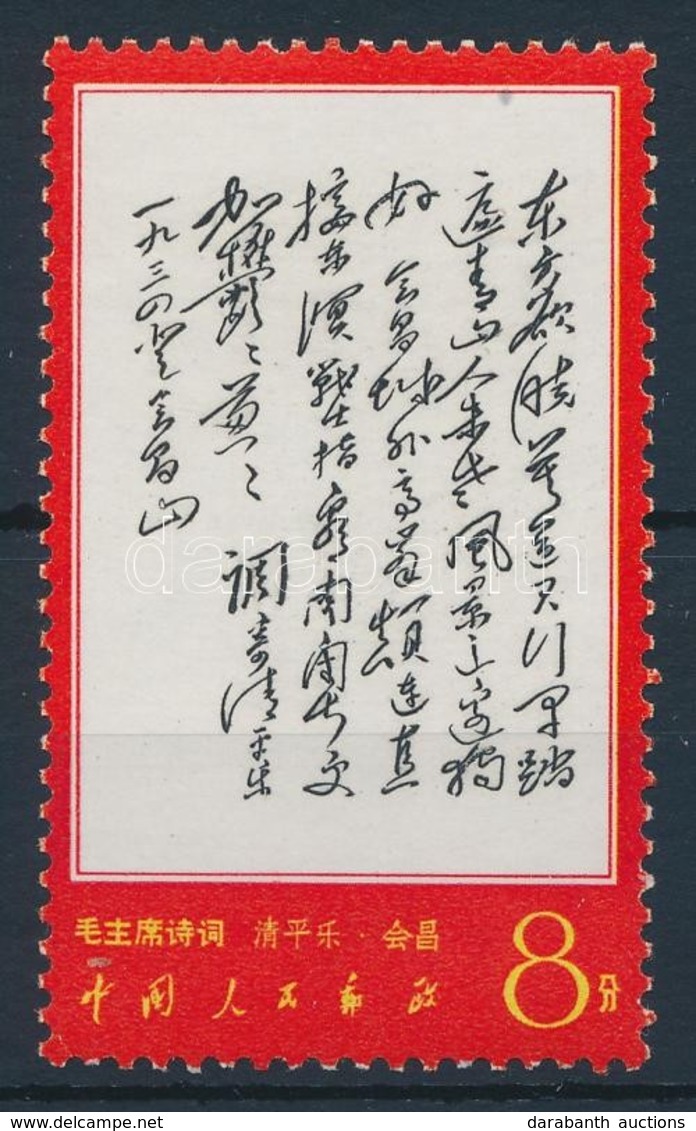 东方欲晓莫道君行早踏
遍青山人未老風景这边独
好 会昌城外高峰颠连直
接东溟戰士指看南粤更
加鬱々葱々 调寄清平乐
一九三四登会昌山
毛主席诗词 清平乐·会昌
中国人民邮政
8分
darabanth
www.darabanth.com
darabanth auctions